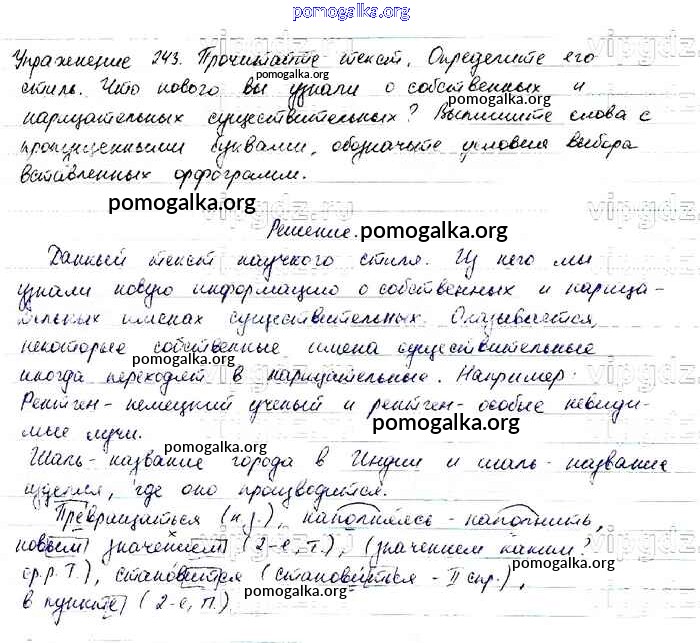 pomogalka.org
Упражнение 243. Прочитайте текст. Определите его
pomogalka.org
стиль. Что нового вы узнали о собственных и
pomogalka.org
нарицательных существительных? Выпишите слова с
пропущенными буквами, обозначьте условия выбора
вставленных орфограмм.
pomogalka.org
Решение.
pomogalka.org
Данный текст научного стиля. Из него мы
узнали новую информацию о собственных и нарица-
тельных именах существительных. Оказывается,
некоторые собственные имена существительные
pomogalka.org
иногда переходят в нарицательные. Например:
Рентген - немецкий ученый и рентген - особые невиди-
pomogalka.org
мые лучи.
pomogalka.org
Шаль - название города в Индии и шаль - название
изделия, где оно производится.
Превращаться (н.з.), наполняясь - наполнить,
новым значением (2-е, т.), (значением каким?
ср.р. Т.), становится (становиться - II спр.),
pomogalka.org
в пункте (2-е, п.)
pomogalka.org